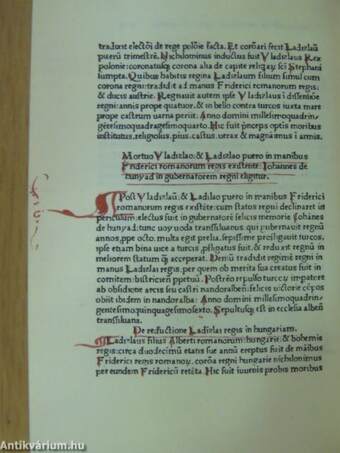 tradunt electoēi de rege polōie facta. Et corōari fecit Ladislaū
puerū trimestrē. Nichilominus inductus fuit Vladislaus Rex
polonie: coronatusq; corona alia de capite reliqarū sci Stephani
sumpta. Quibus habitis regina Ladislaum filium simul cum
corona regni: tradidit ad manus Friderici romanorum regis:
& ducis austrie. Regnauit autem ipse Vladislaus ī dissensiōe
regni: annis prope quatuor. & in bello contra turcos iuxta mare
prope castrum uarna periit. Anno domini millesimoquadrin
gentesimoquadragesimoquarto. Hic fuit prīceps optīs moribus
institutus. religiosus. pius. castus. & ultra q̄ magnaīmus ī armis.
Mortuo Vladislao: & Ladislao puero in manibus
Friderici romanorum regis existente: Iohannes de
hunyad in gubernatorem regni eligitur.
POst Vladislaū: & Ladislao puero in manibus Friderici
romanorum regis existēte: cum status regni declinaret īn
periculum. electus fuit in gubernatorē felicis memorie Iohānes
de hunyad: tunc uoyuoda transsiluanus qui gubernauit regnū
annos. ppe octo. multa egit prelia. sepissime prostigauit turcos.
ipse etiam bina uice a turcis. pfligatus fuit. & redu xit regnū in
meliorem statum q̄ acceperat. Demū tradidit regimē regni in
manus Ladislai regis. per quem ob merita sua creatus fuit in
comitem: bistriciēn ppetuū. Postrēo repulso turcoɽ impatore
ab obsidiōe arcis seu castri nandoralbeñ: felices inter suos copias
obiit ibidem in nandoralba: Anno domini millesimoquadrin
gentesimoquinquagesimosexto. Sepultusq; est in ecclesia albeñ
transsiluana.
De reductione Ladislai regis in hungariam.
LAdislaus filius Alberti romanorum: hungarie: & bohemie
regis: circa duodecimū etatis sue annū ereptus fuit de māibus
Friderici regis romanoɽ. corōa regni nichilonimus
per eundem Fridericū retēta. Hic fuit iuuenis probis moribus
Antikvárium.hu